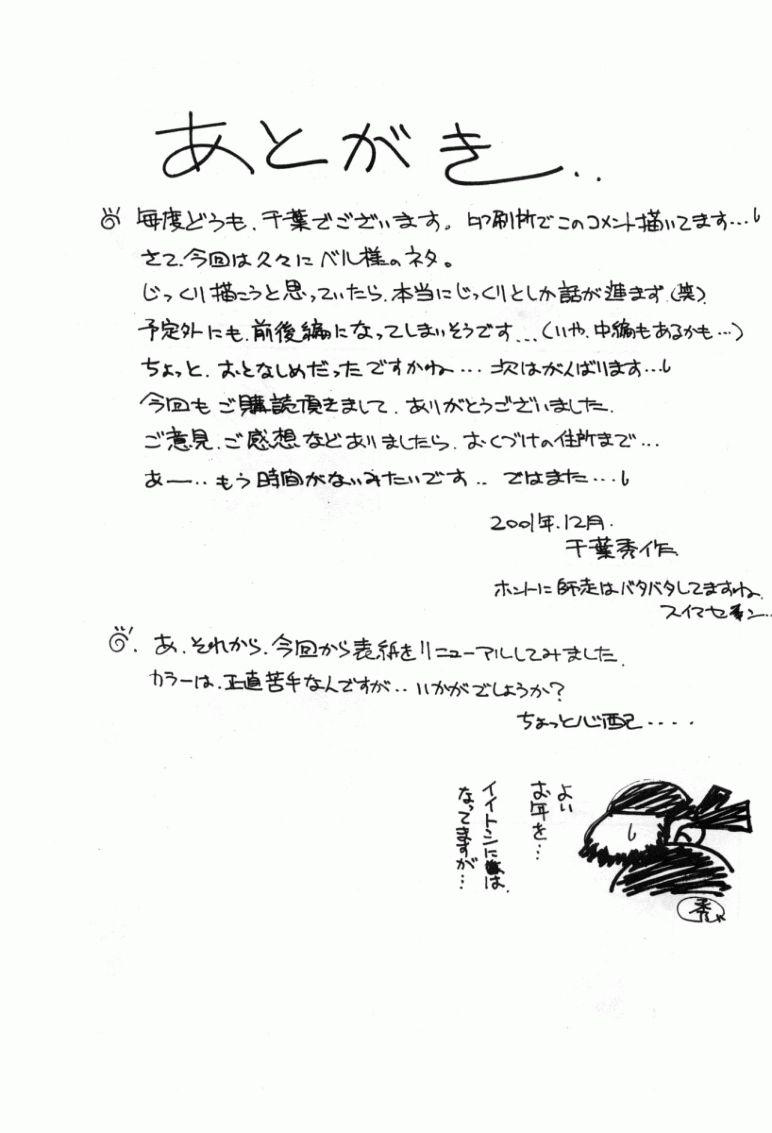 あとがき..
毎度どうも、千葉でございます。印刷所でこのコメント描いてます…
さて、今回は久々にベル様のネタ。
じっくり描こうと思っていたら、本当にじっくりとしか話が進まず(笑)
予定外にも、前後編になってしまいそうです…(いや、中編もあるかも…)
ちょっと、おとなしめだったですかね…次はがんばります…
今回もご購読頂きまして、ありがとうございました。
ご意見、ご感想などありましたら、おくづけの住所まで…
あー‥もう時間がないみたいです‥ではまた…
2001年.12月.
千葉秀作
ホントに師走はバタバタしてますね、
スイマセン…
あ、それから、今回から表紙をリニューアルしてみました。
カラーは、正直苦手なんですが‥いかがでしょうか?
ちょっと心配‥‥
よい
お年を…
イイトシには、
なってますが…
秀